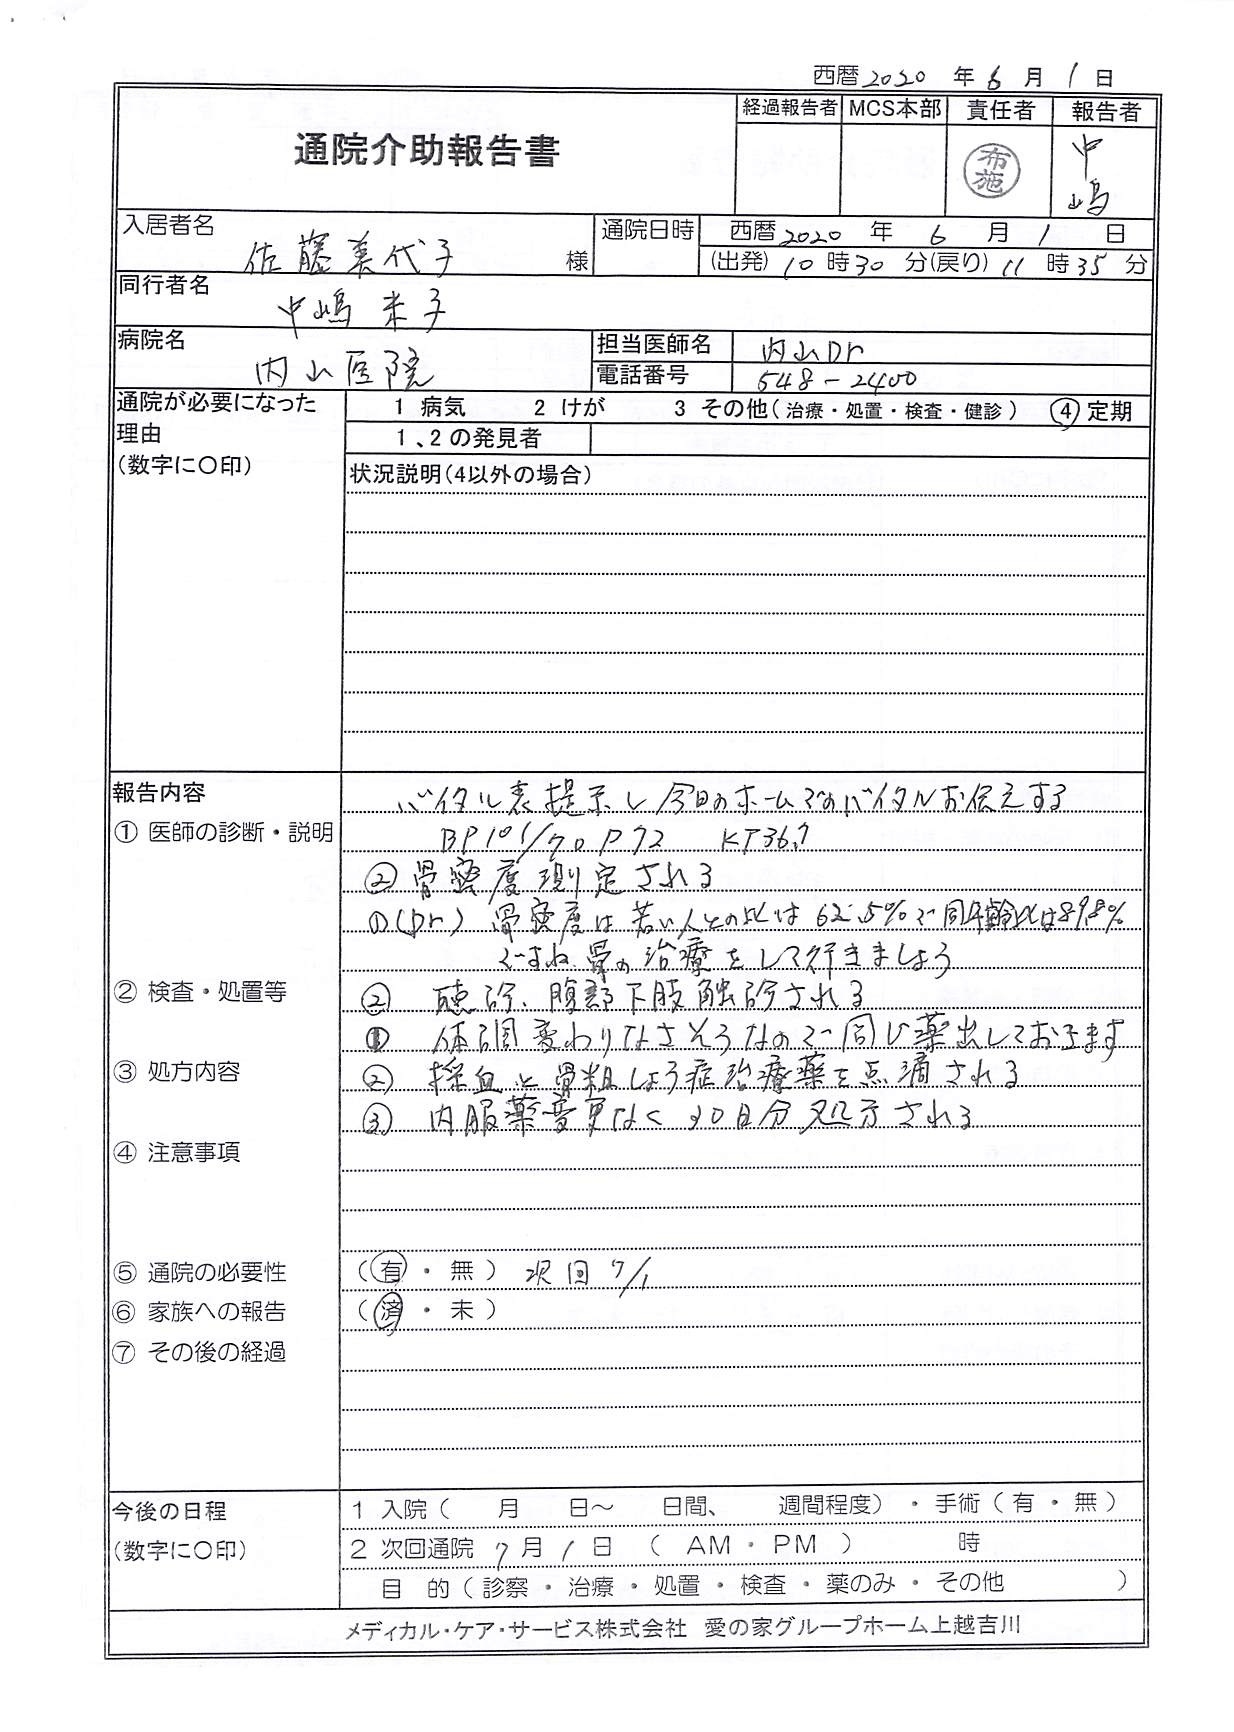 西暦2020年6月1日
通院介助報告書
経過報告者 MCS本部 責任者 報告者
布施 中嶋
入居者名 佐藤美代子 様
通院日時 西暦2020年6月1日
(出発)10時30分(戻り)11時35分
同行者名 中嶋米子
病院名 内山医院
担当医師名 内山Dr
電話番号 548-2400
通院が必要になった理由
(数字に〇印)
1 病気 2 けが 3 その他(治療・処置・検査・健診) ④定期
1、2の発見者
状況説明(4以外の場合)
報告内容
バイタル表提示し今日のホームでのバイタルお伝えする
① 医師の診断・説明
BP101/70 P72 KT36.7
② 骨密度測定される
①(Dr) 骨密度は若い人との比は62.5%で同年齢比は89.8%
ですね.骨の治療をして行きましょう
② 検査・処置等
② 聴診、腹部下肢触診される
① 体調変わりなさそうなので同じ薬出しておきます
③ 処方内容
② 採血と骨粗しょう症治療薬を点滴される
③ 内服薬変更なく30日分処方される
④ 注意事項
⑤ 通院の必要性 (有・無) 次回 7/1
⑥ 家族への報告 (済・未)
⑦ その後の経過
今後の日程
(数字に〇印)
1 入院( 月 日～ 日間、 週間程度)・手術(有・無)
2 次回通院 7月1日 ( AM・PM ) 時
目 的(診察・治療・処置・検査・薬のみ・その他 )
メディカル・ケア・サービス株式会社 愛の家グループホーム上越吉川